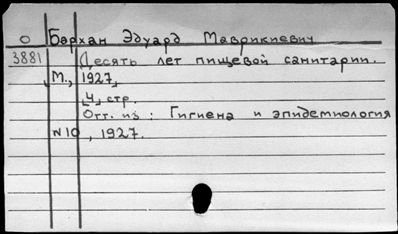 О Бархан Эдуард Маврикиевич
3881 Десять лет пищевой санитарии.
М., 1927,
4 стр.
Отт. из: Гигиена и эпидемиология
№10, 1927.